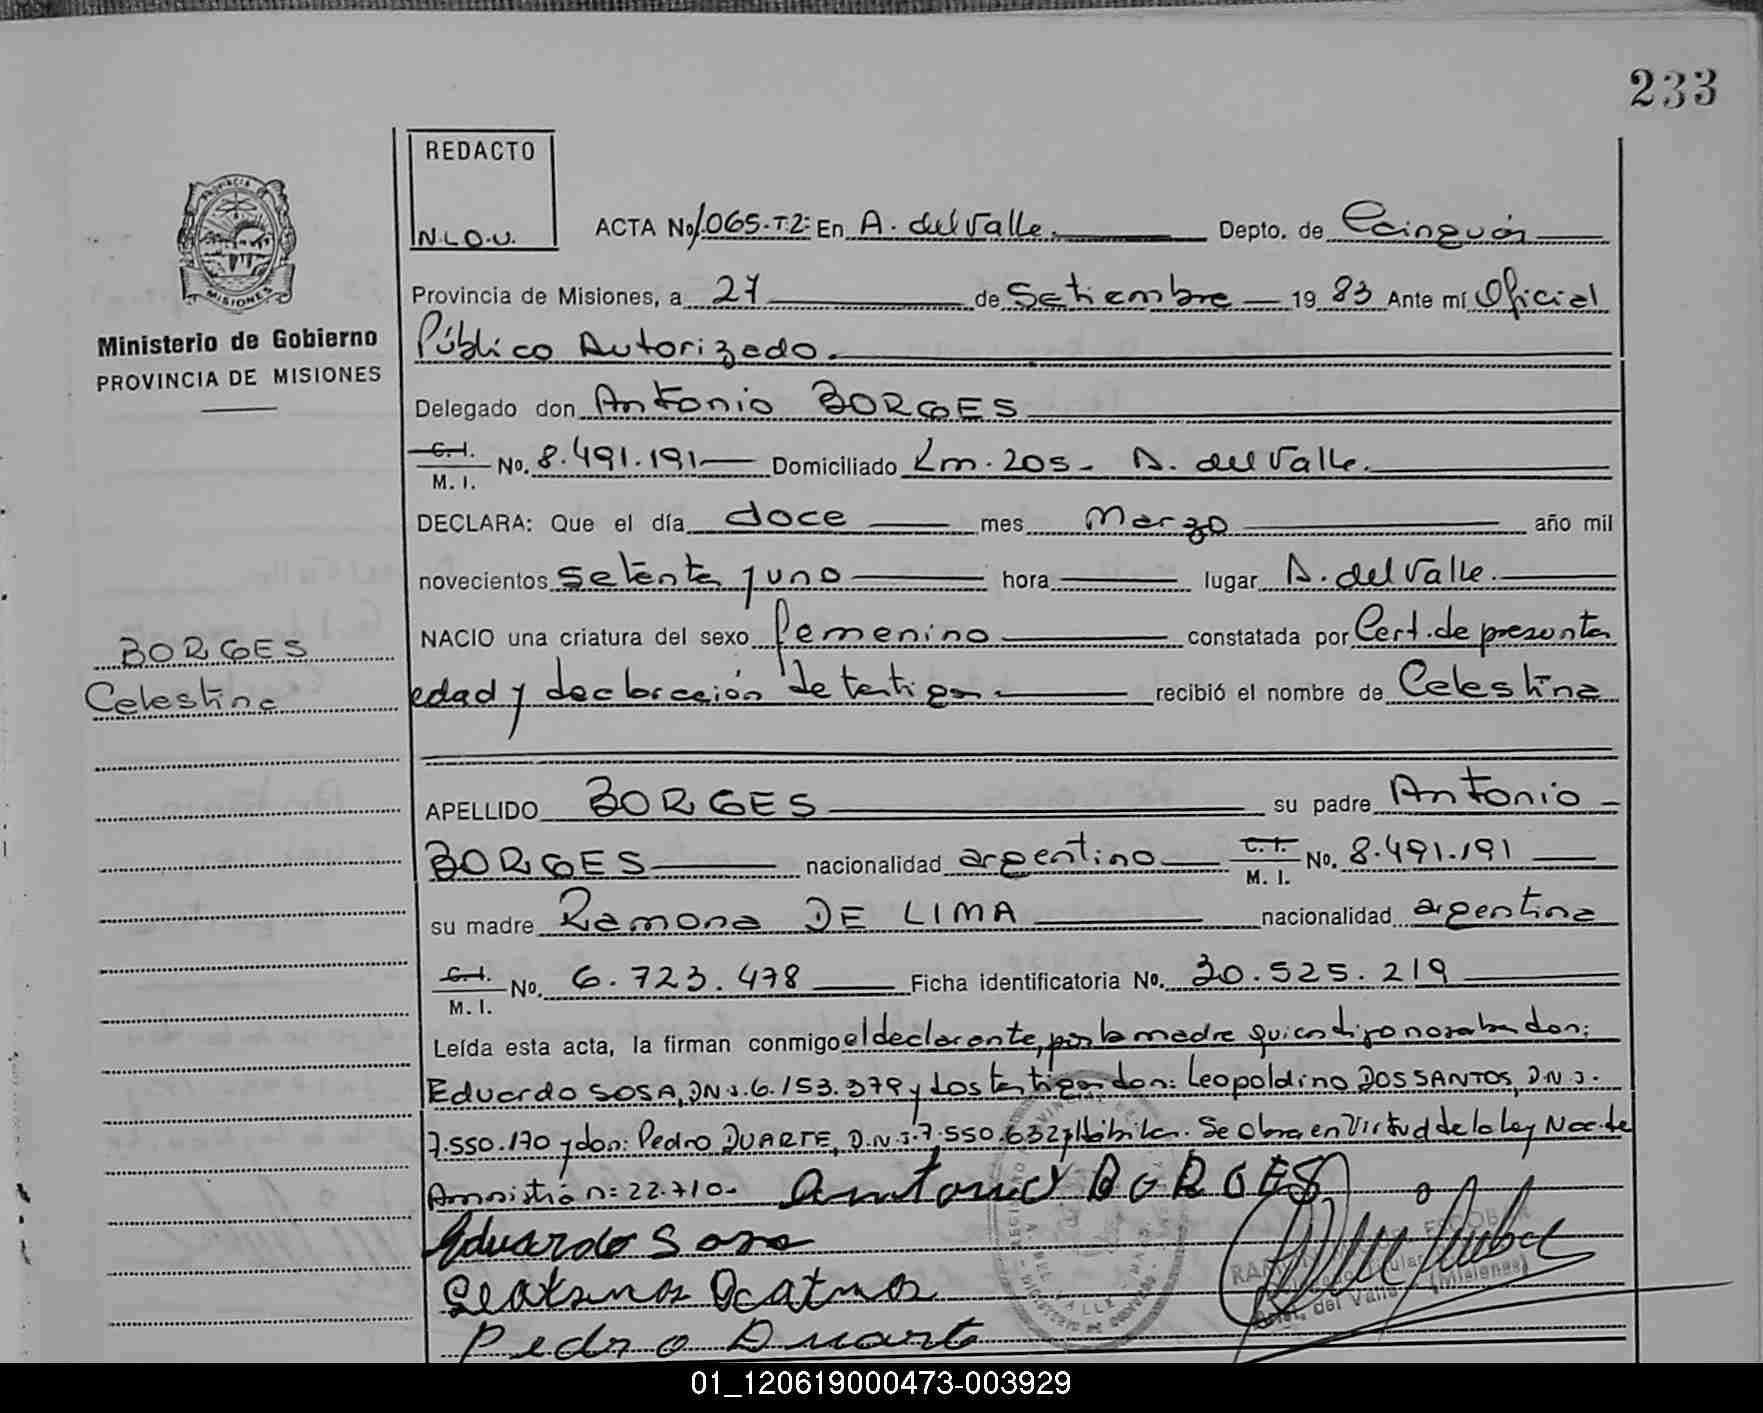 233
REDACTO
N.L.O.U.
PROVINCIA DE
MISIONES
Ministerio de Gobierno
PROVINCIA DE MISIONES
ACTA No 1.065.T.2: En A. del Valle. Depto. de Cainguás
Provincia de Misiones, a 27 de Setiembre 19 83 Ante mí Oficial
Público Autorizado.
Delegado don Antonio BORGES
C.I. M. I. No. 8.491.191 Domiciliado Km. 205. A. del Valle.
DECLARA: Que el día doce mes Marzo año mil
novecientos setenta y uno hora lugar A. del Valle.
NACIO una criatura del sexo femenino constatada por Cert. de presunta
edad y declaración de testigos recibió el nombre de Celestina
BORGES
Celestina
APELLIDO BORGES su padre Antonio
BORGES nacionalidad argentino C.I. M. I. No. 8.491.191
su madre Ramona DE LIMA nacionalidad argentina
C.I. M. I. No. 6.723.478 Ficha identificatoria No. 20.525.219
Leída esta acta, la firman conmigo el declarente, por la madre quien dijo no saber don:
Eduardo SOSA, DNJ. 6.153.379 y Los testigos don: Leopoldino DOS SANTOS, D.N.J.
7.550.170 y don: Pedro DUARTE, D.N.J. 7.550.632 Hábiles. Se obra en Virtud de la Ley Nac. de
Amnistía n: 22.710.
Antonio BORGES
Eduardo Sosa
Pedro Duarte
ESCOBAR
Titular
Arist. del Valle (Misiones)
01_120619000473-003929